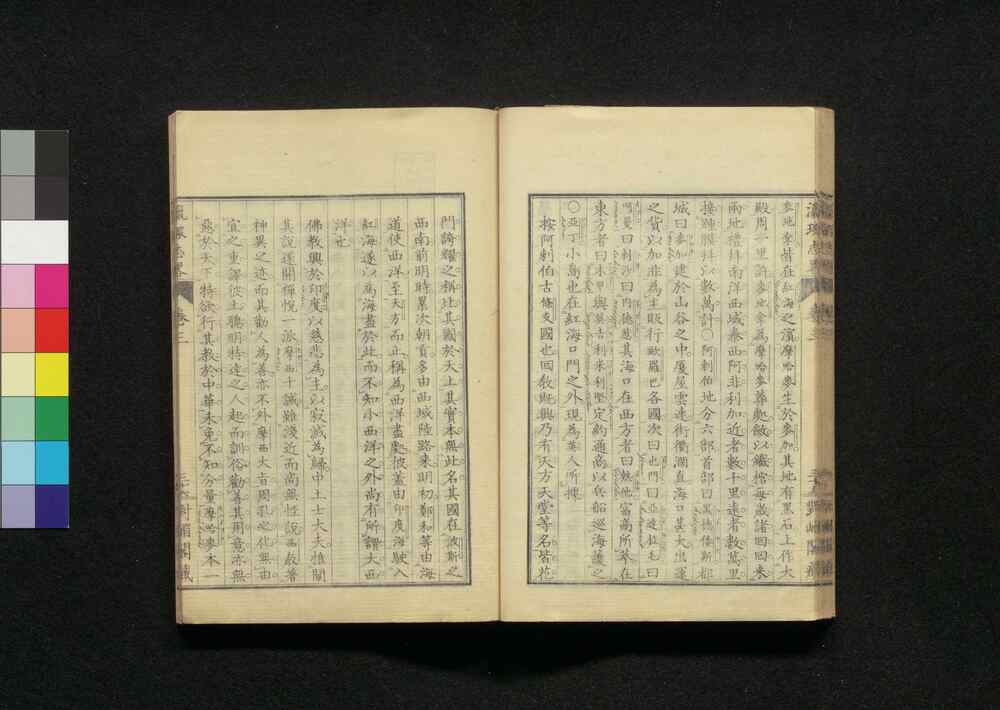 麥地拿皆在紅海之濱摩哈麥生於麥加其地有黑石上作大
殿周一里許麥地拿為摩哈麥葬處斂以鐵棺每歲諸回回來
兩地禮拜南洋西域泰西阿非利加近者數千里遠者數萬里
接踵膜拜以數萬計〇阿剌伯地分六部首部曰黑德倭斯都
城曰麥加建於山谷之中廈屋雲連街衢濶直海口甚大出運
之貨以加非為主販行歐羅巴各國次曰也門曰亞達拉毛曰
阿曼曰剌沙曰內德惹其海口在西方者曰軟他富商所萃在
東方者曰木甲與英吉利米利堅定約通商以兵船巡海護之
〇亞丁小島也在紅海口門之外現為英人所據
按阿剌伯古條支國也回敎既興乃有天方天堂等名皆花
門誇耀之稱比其國於天上其實本無此名其國在波斯之
西南前明時累次朝貢多由西域陸路來明初鄭和等由海
道使西洋至天方而止稱為西洋盡處彼蓋由印度海駛入
紅海遂以為海盡於此而不知小西洋之外尚有所謂大西
洋也
佛敎興於印度以慈悲為主以寂滅為歸中土士大夫推闡
其說遂開禪悅一派摩西十誡雖淺近而尚無怪說西敎著
神異之迹而其勸人為善亦不外摩西大旨周孔之化無由
宜之重譯彼土聰明特達之人起而訓俗勸善其用意亦無
惡於天下特欲行其敎於中華未免不知分量摩哈麥本一
瀛環志略 卷三